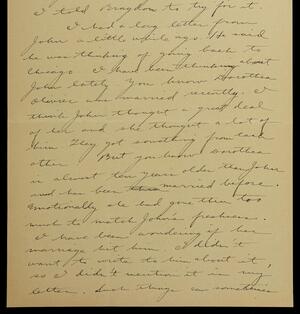 I told Brandom to try for it.
I had a long letter from
John a little while ago. He said
he was thinking of going back to
Chicago. I have been thinking about
John lately. You know Dorothea
was married recently. I
think John thought a great deal
of her and she thought a lot of
him. They got something from each
other. But you know Dorothea
is almost ten years older than John
and has been married before.
Emotionally she had gone thru too
much to match John's freshness.
I have been wondering if her
marriage hit him. I didn't
want to write to him about it,
so I didn't mention it in my
letter. Such things can sometimes